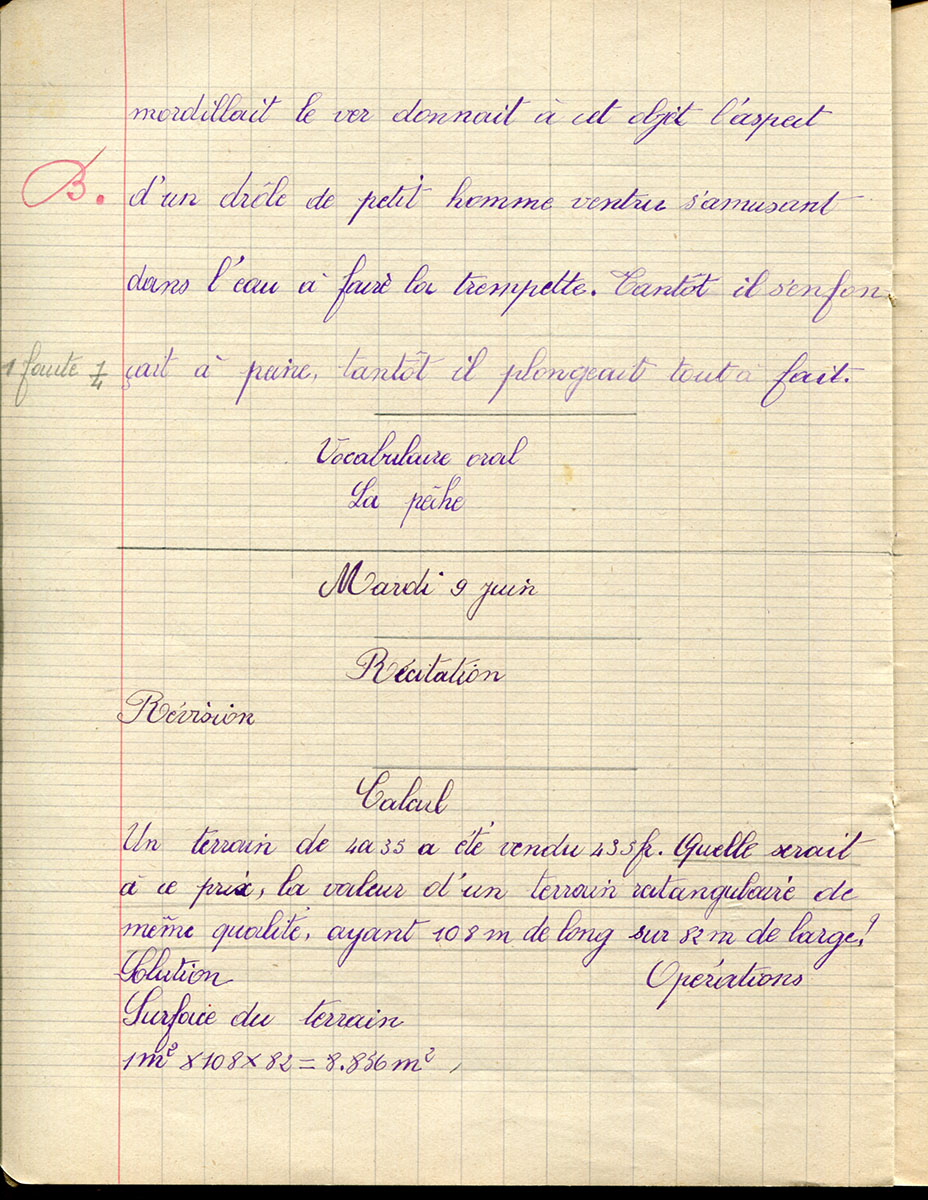 mordillait le ver donnait à cet objet l'aspect
B. d'un drôle de petit homme ventru s'amusant
dans l'eau à faire la trempette. Tantôt il s'enfon
1 faute 1/4 çait à peine, tantôt il plongeait tout à fait.
Vocabulaire oral
La pêche
Mardi 9 juin
Récitation
Révision
Calcul
Un terrain de 4a35 a été vendu 435f. Quelle serait
à ce prix, la valeur d'un terrain rectangulaire de
même qualité, ayant 108 m de long sur 82 m de large?
Solution Opérations
Surface du terrain
1m² × 108 × 82 = 8.856 m²